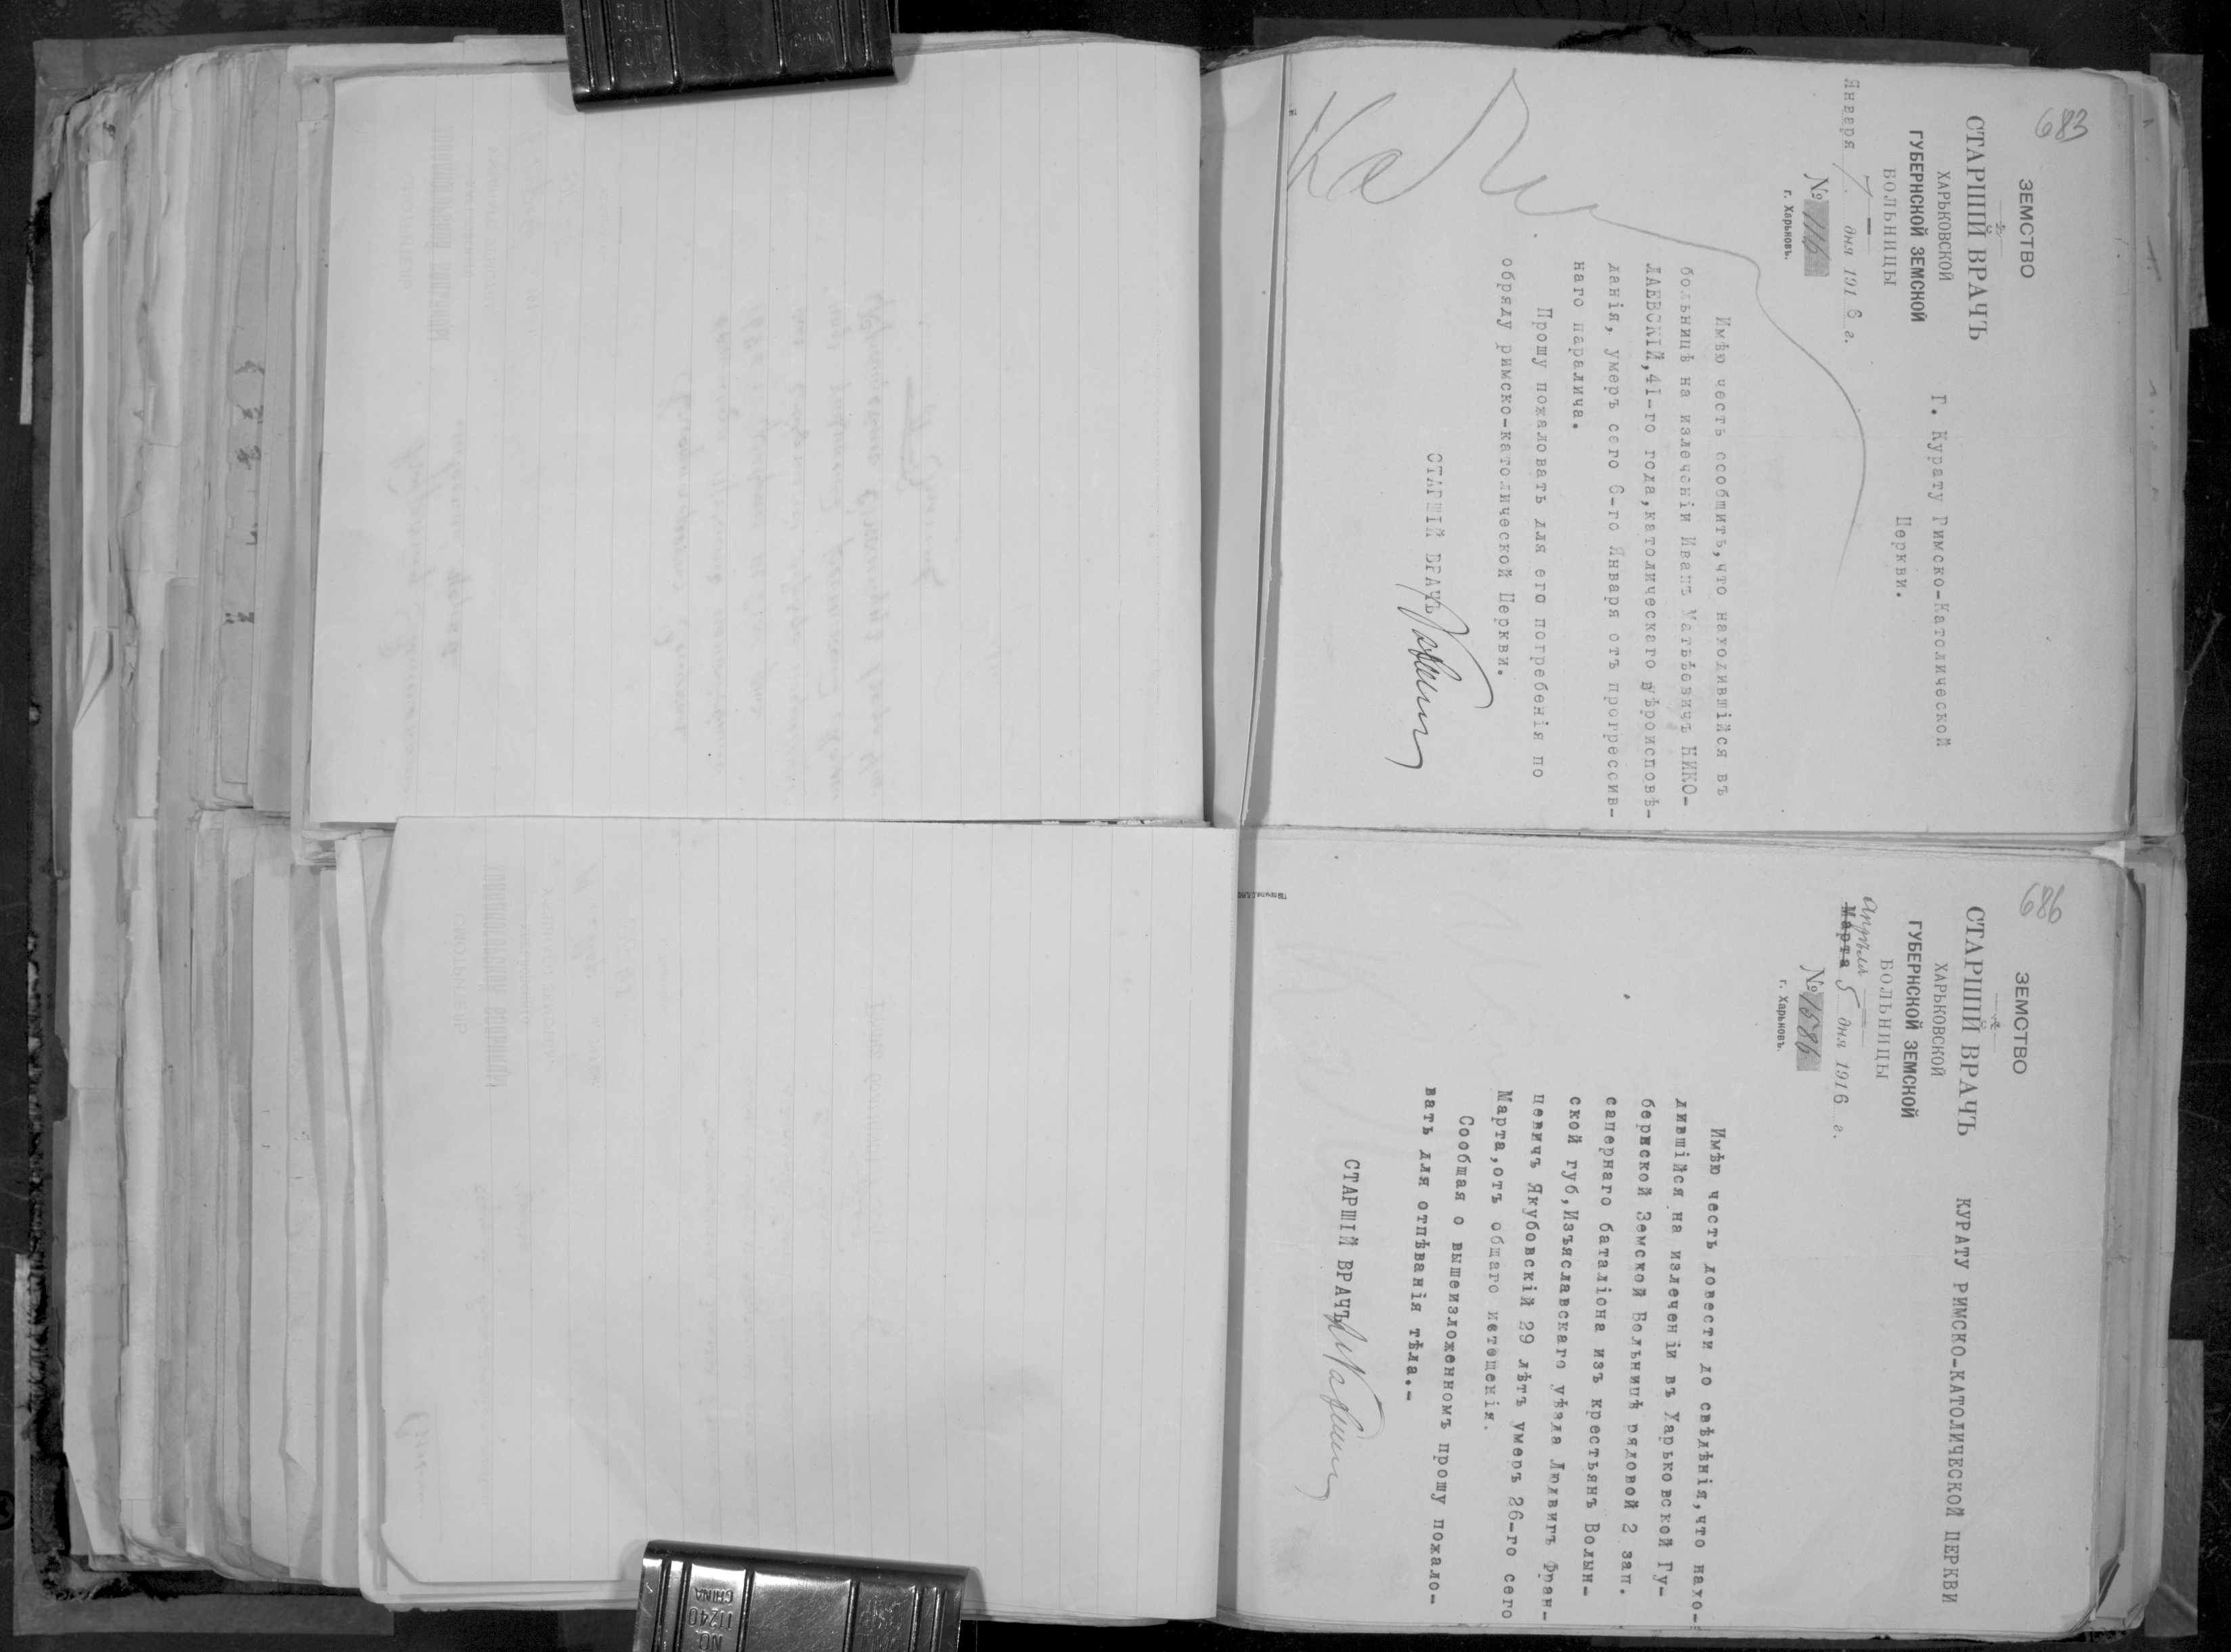 683
ЗЕМСТВО
СТАРШІЙ ВРАЧЪ
ХАРЬКОВСКОЙ
ГУБЕРНСКОЙ ЗЕМСКОЙ
БОЛЬНИЦЫ
Января 7 дня 1916 г.
№ 116
г. Харьковъ.
Г. Курату Римско-Католической
Церкви.
Имѣю честь сообщить,что находившійся въ
больницѣ на излеченіи Иванъ Матвѣевичъ НИКО-
ЛАЕВСКІЙ,41-го года,католическаго вѣроисповѣ-
данія, умеръ сего 6-го Января отъ прогрессив-
наго паралича.
Прошу пожаловать для его погребенія по
обряду римско-католической Церкви.
СТАРШІЙ ВРАЧЪ
686
ЗЕМСТВО
СТАРШІЙ ВРАЧЪ
ХАРЬКОВСКОЙ
ГУБЕРНСКОЙ ЗЕМСКОЙ
БОЛЬНИЦЫ
Апрѣля
Марта 5 дня 1916 г.
№ 1586
г. Харьковъ.
КУРАТУ РИМСКО-КАТОЛИЧЕСКОЙ ЦЕРКВИ
Имѣю честь довести до свѣдѣнія,что нахо-
дившійся на излеченіи въ Харьковской Гу-
бернской Земской Больницѣ рядовой 2 зап.
сапернаго баталіона изъ крестьянъ Волын-
ской губ,Изъяславскаго уѣзда Людвигъ Фран-
цевичъ Якубовскій 29 лѣтъ умеръ 26-го сего
Марта,отъ общаго истощенія.
Сообщая о вышеизложенномъ прошу пожало-
вать для отпѣванія тѣла.-
СТАРШІЙ ВРАЧЪ
NO.
11240
CHINA